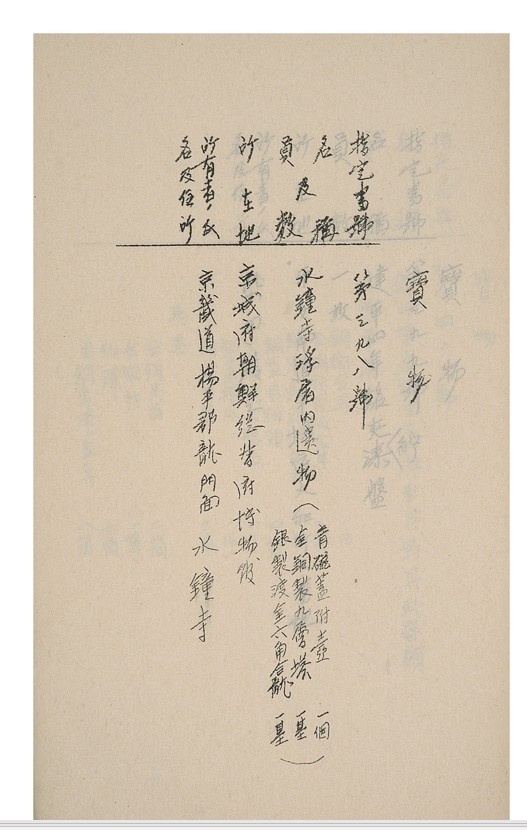 寶物
指定書號 第三九八號
名稱及員數 水鐘寺浮屠內遺物(
靑磁蓋附壺 一個
金銅製九層塔 一基
銀製渡金六角合龕 一基)
所在地 京城府朝鮮總督府博物館
所有者ノ氏名及住所 京畿道楊平郡龍門面 水鐘寺